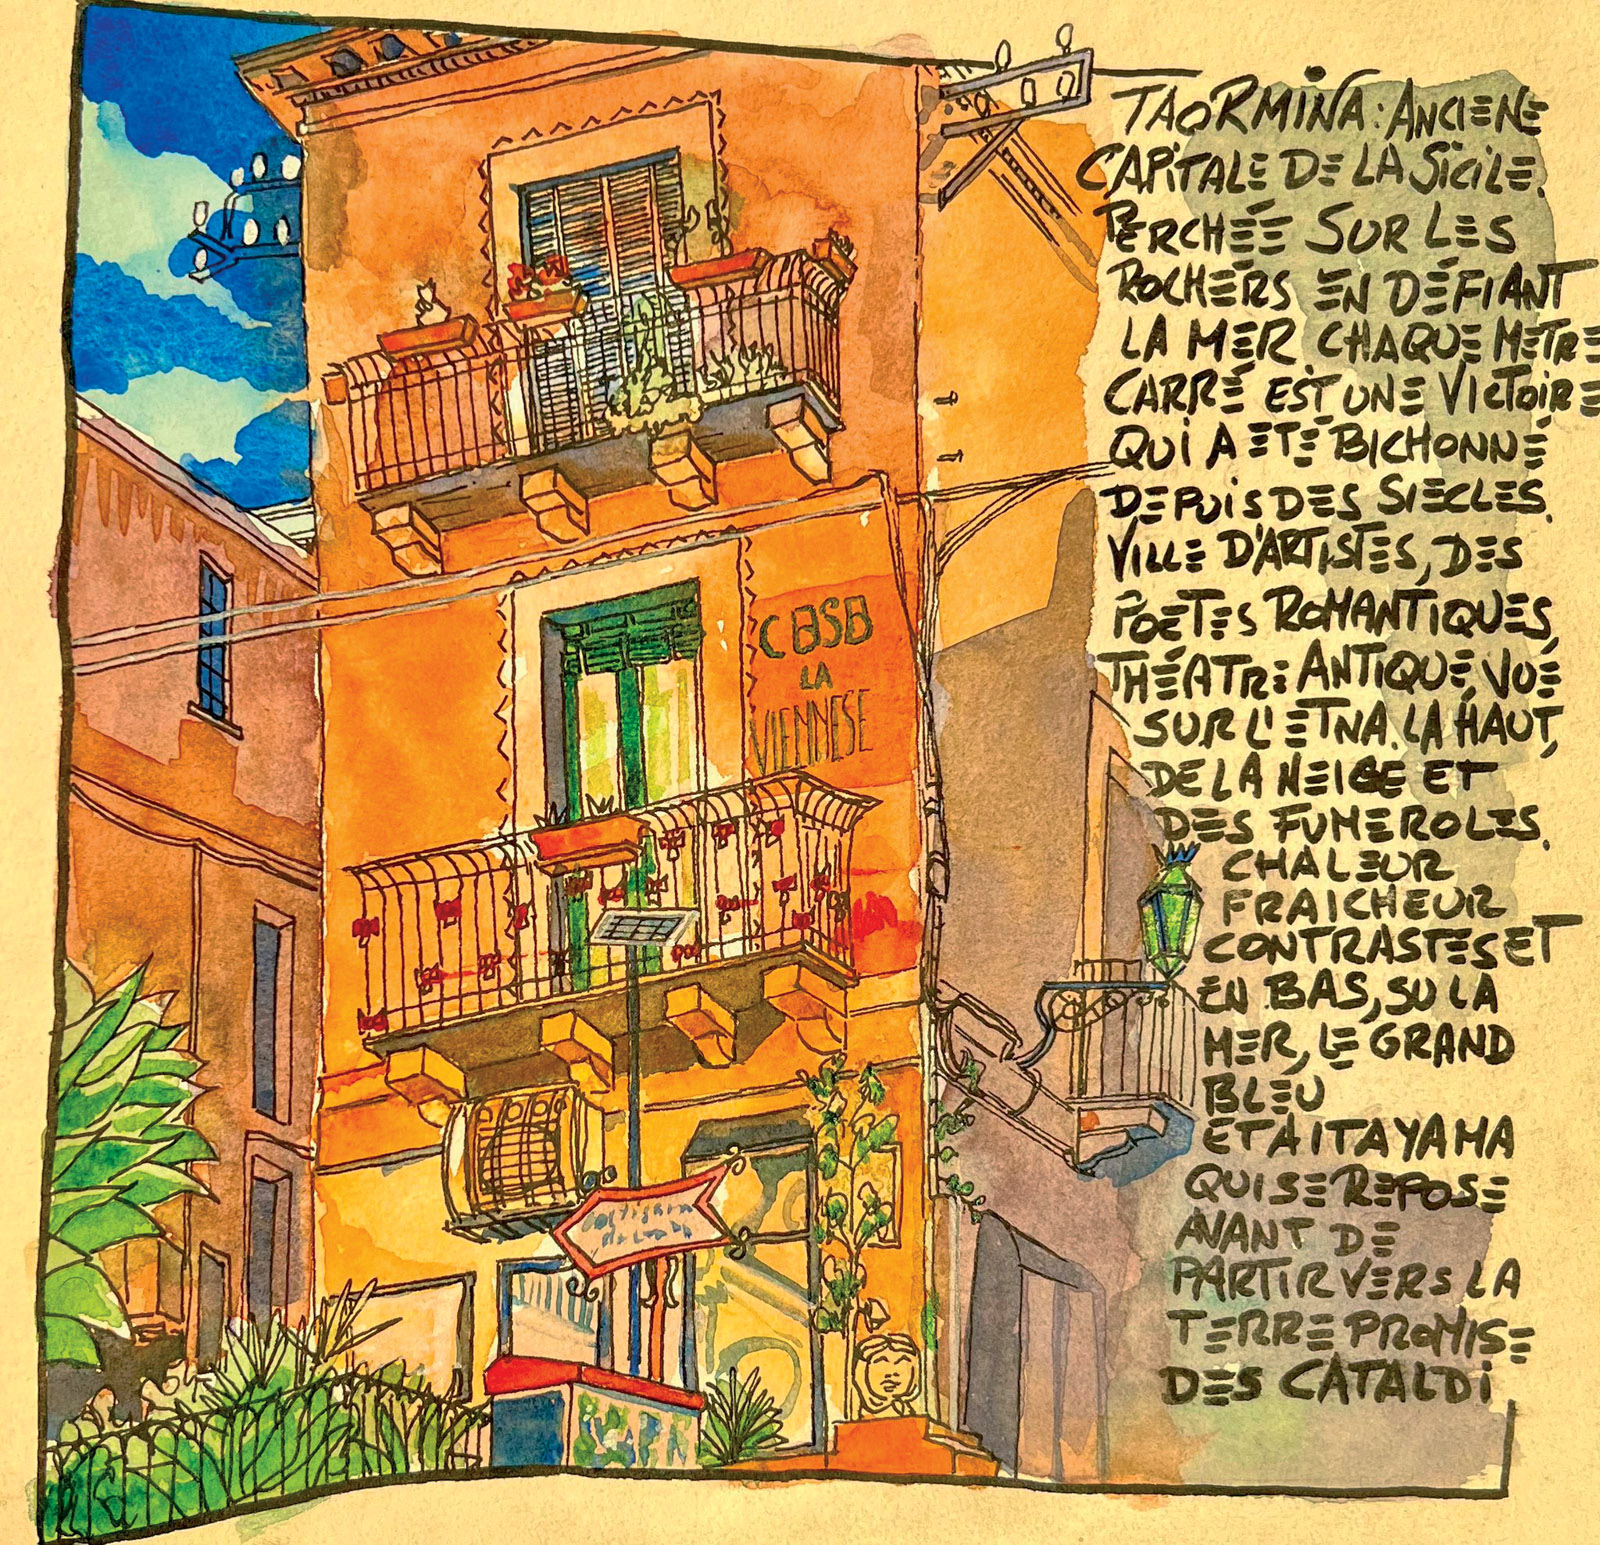 TAORMINA: ANCIENE
CAPITALE DE LA SICILE.
PERCHÉE SUR LES
ROCHERS EN DÉFIANT
LA MER CHAQUE METRE
CARRÉ EST UNE VICTOIRE
QUI A ETÉ BICHONNÉ
DEPUIS DES SIECLES.
VILLE D'ARTISTES, DES
POETES ROMANTIQUES,
THÉATRE ANTIQUE, VUE
SUR L'ETNA. LA HAUT,
DE LA NEIGE ET
DES FUMEROLES.
CHALEUR
FRAICHEUR
CONTRASTES ET
EN BAS, SU LA
MER, LE GRAND
BLEU
ETAITAYAMA
QUI SE REPOSE
AVANT DE
PARTIR VERS LA
TERRE PROMISE
DES CATALDI
CASA
LA
VIENNESE